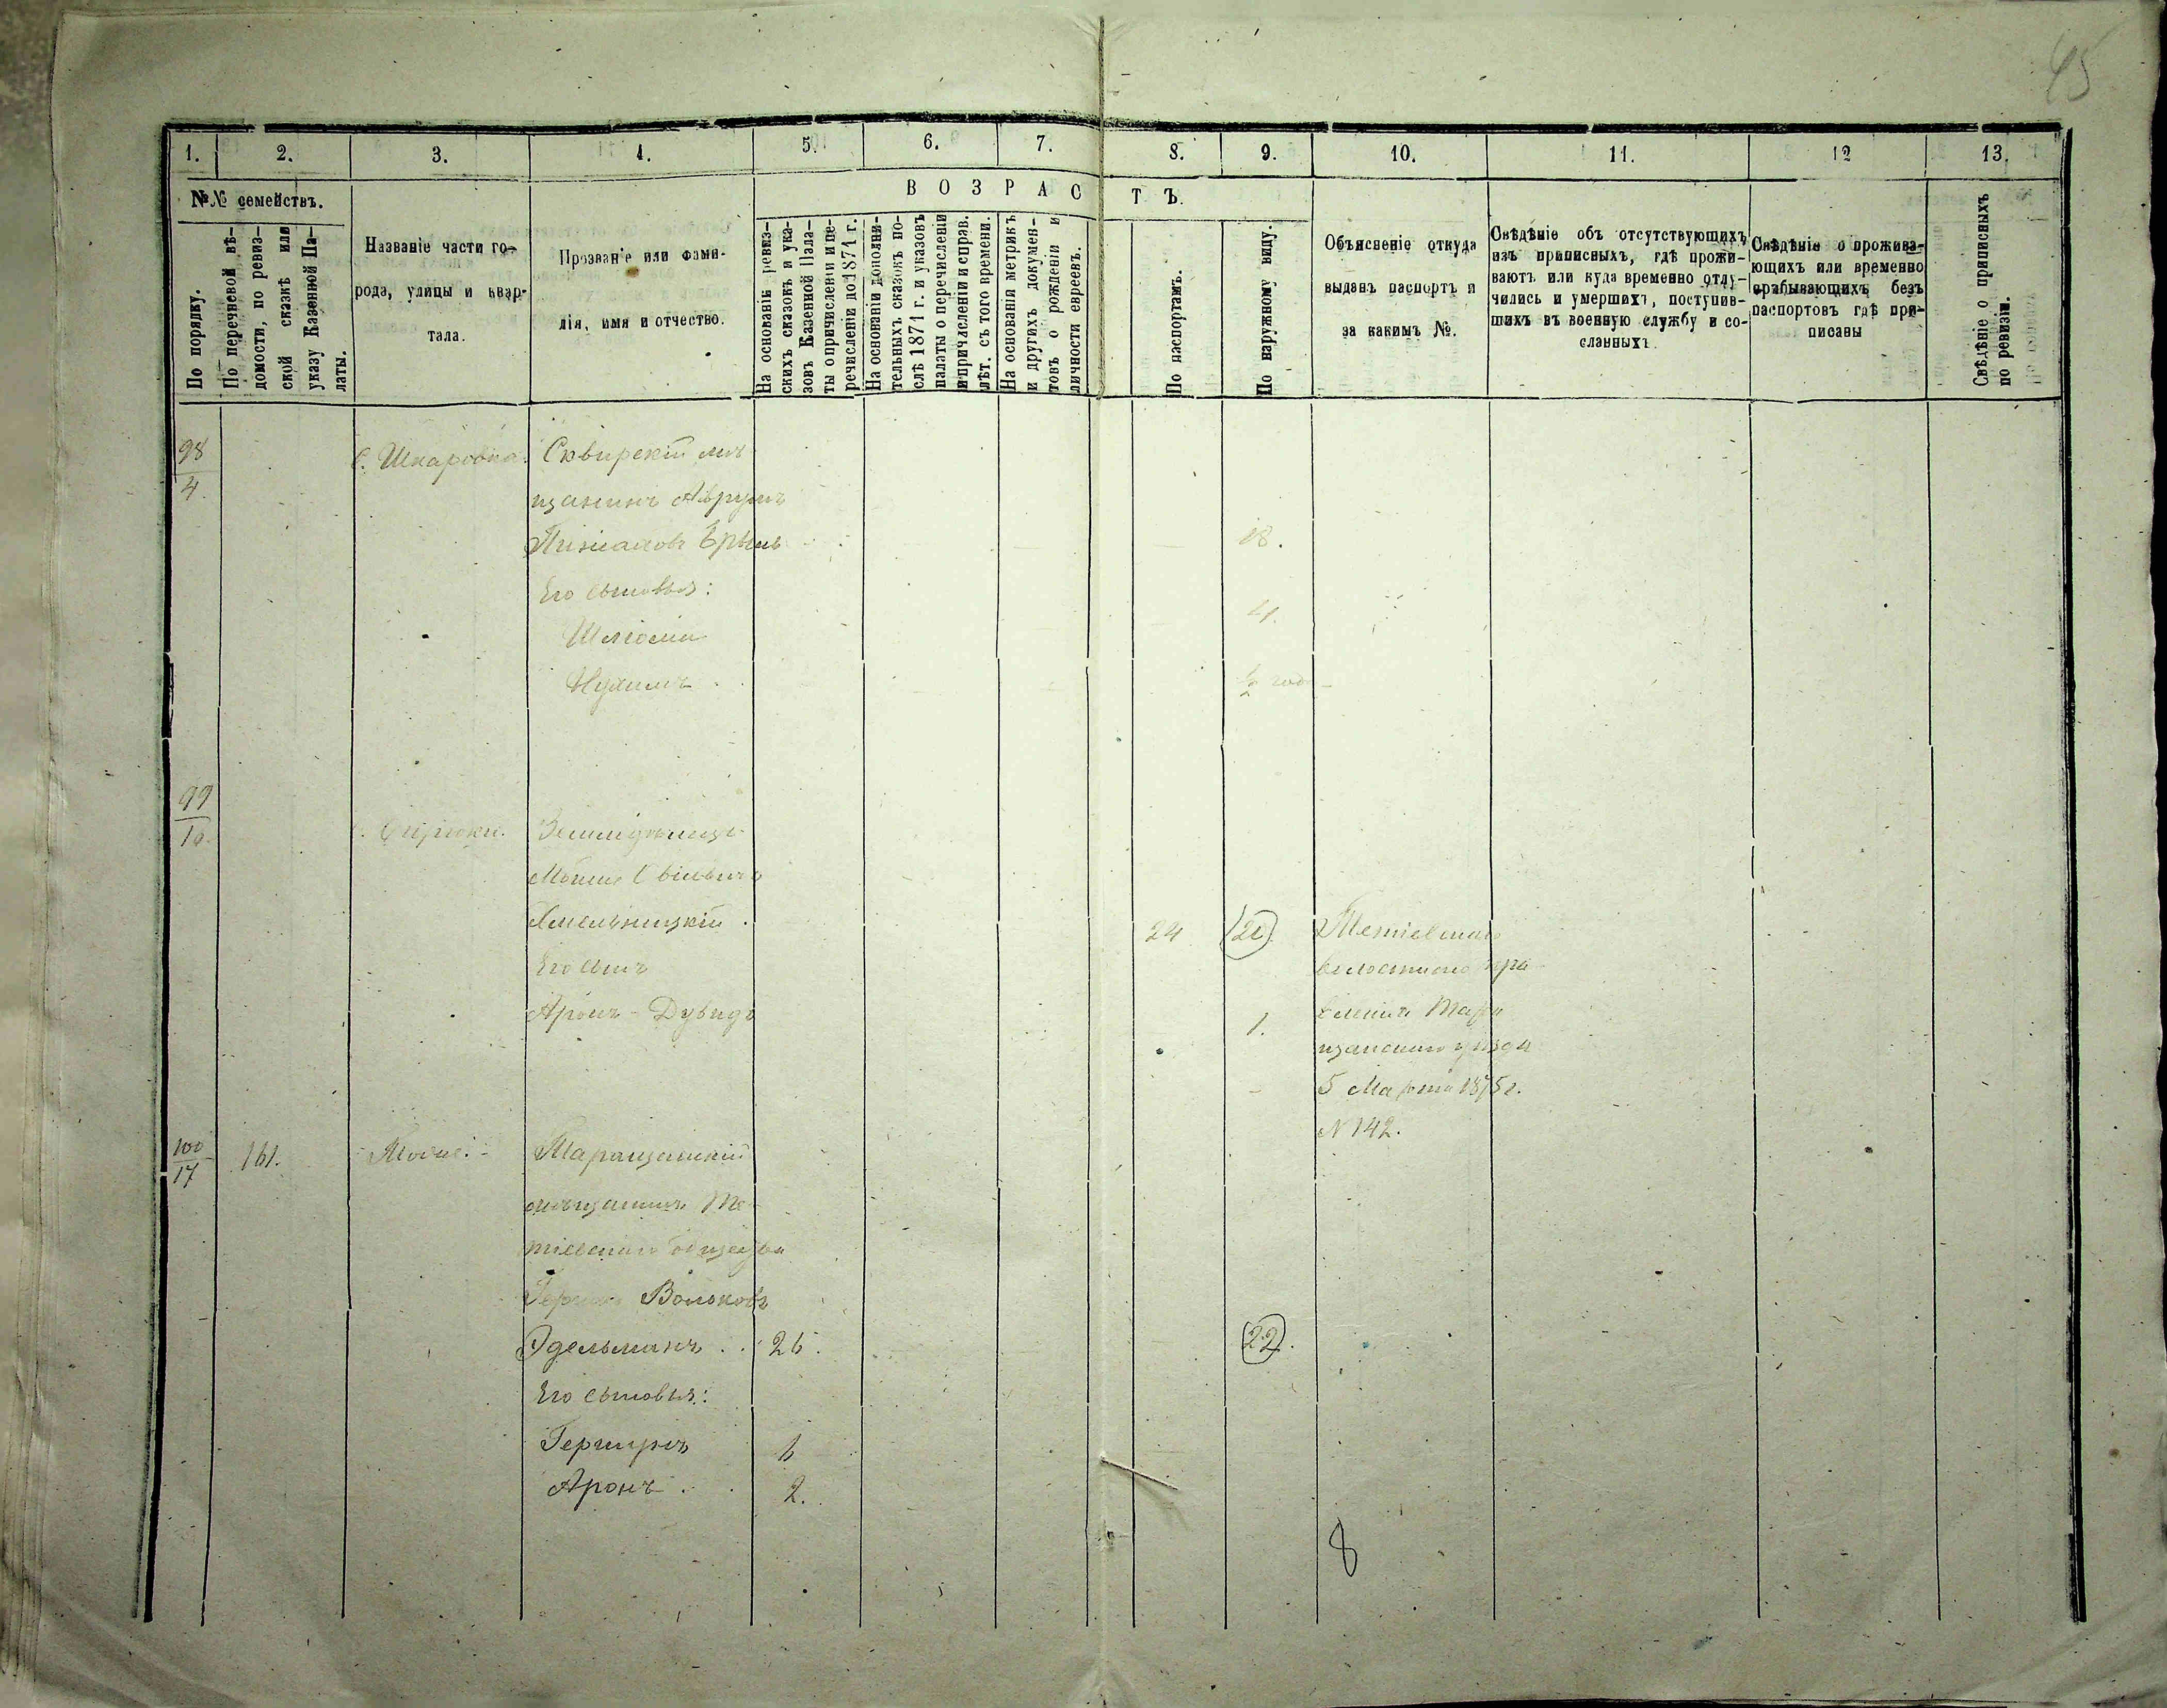 45
1. 2. 3. 4. 5. 6. 7. 8. 9. 10. 11. 12 13.
№№ семействъ.
По порядку.
По перечневой вѣ-
домости, по ревиз-
ской сказкѣ или
указу Казенной Па-
латы.
Названіе части го-
рода, улицы и квар-
тала.
Прозваніе или фами-
лія, имя и отчество.
ВОЗРАСТЪ.
На основаніи ревиз-
скихъ сказокъ и ука-
зовъ Казенной Пала-
ты о причислени и пе-
речислени до 1871 г.
На основаніи дополни-
тельныхъ сказокъ по-
слѣ 1871 г. и указовъ
палаты о перечислени
и причисленіи и справ.
лѣт. съ того времени.
На основаніи метрикъ
и другихъ докумен-
товъ о рожденіи и
личности евреевъ.
По паспортамъ.
По наружному виду.
Объясненіе откуда
выданъ паспортъ и
за какимъ №.
Свѣдѣніе объ отсутствующихъ
изъ приписныхъ, гдѣ прожи-
ваютъ или куда временно отлу-
чились и умершихъ, поступив-
шихъ въ военную службу и со-
сланныхъ.
Свѣдѣніе о прожива-
ющихъ или временно
пребывающихъ безъ
паспортовъ гдѣ при-
писаны
Свѣдѣніе о приписныхъ
по ревизіи.
98
4.
с. Шкаровка.
Сквирскій мѣ-
щанинъ Аврумъ
18.
Его сыновья:
4.
Шлиома
Нухимъ
½ года
99
16.
Мошко
Хмельницкій
24
Его сынъ
Аронъ-Дувидъ
1.
Тетіевскаго
волостного пра-
вленія Тара-
щанскаго уѣзда
5 Марта 1875 г.
N 142.
100
17
161.
Таращанскій
мѣщанинъ Те-
тіевскаго общества
Вольковъ
Эдельманъ . . 26.
(22).
Его сыновья:
Гершунъ 6
Аронъ . . 2.
8